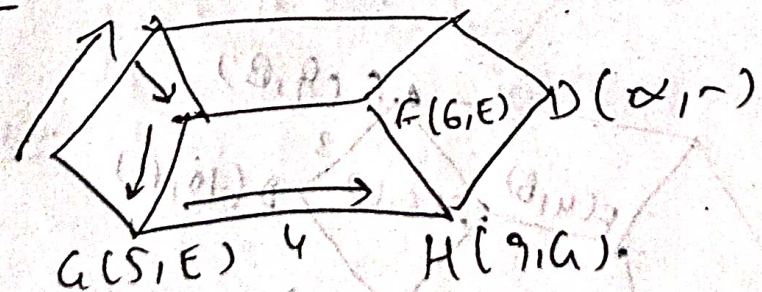 F(6,E) D(∝,-)
G(5,E) 4 H(9,G).